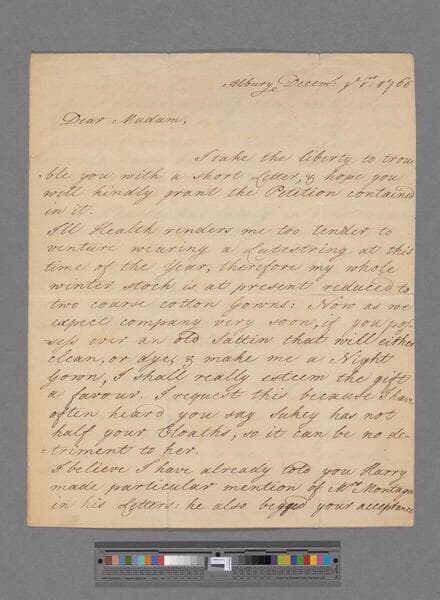 Albury Decemr. ye 1st. 1766
Dear Madam,
I take the liberty to trou
ble you with a short Letter, & hope you
will kindly grant the Petition contained
in it.
Ill Health renders me too tender to
venture wearing a Lutestring at this
time of the Year, therefore my whole
winter stock is at present reduced to
two coarse cotton Gowns: Now as we
expect company very soon, if you pos-
sess ever an old Sattin that will either
clean, or dye, & make me a Night
Gown, I shall really esteem the gift
a favour. I request this because I have
often heard you say Sukey has not
half your Cloaths, so it can be no de-
triment to her.
I believe I have already told you Harry
made particular mention of Mrs. Montagu
in his Letters: he also begged your acceptance